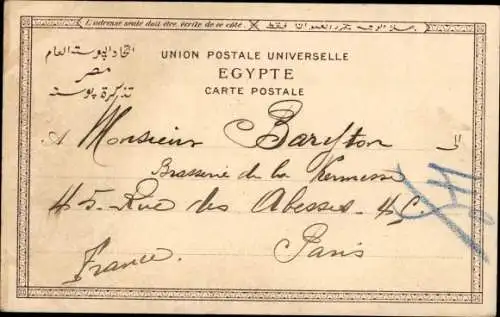 L'adresse seule doit être écrite de ce côté. يكتب في هذا الوجه العنوان فقط
اتحاد البوستة العام
مصر
تذكرة بوسته
UNION POSTALE UNIVERSELLE
EGYPTE
CARTE POSTALE
A Monsieur Bareyton الى
Brasserie de la Kermesse
45 - Rue des Abesses - 45
Paris
France.